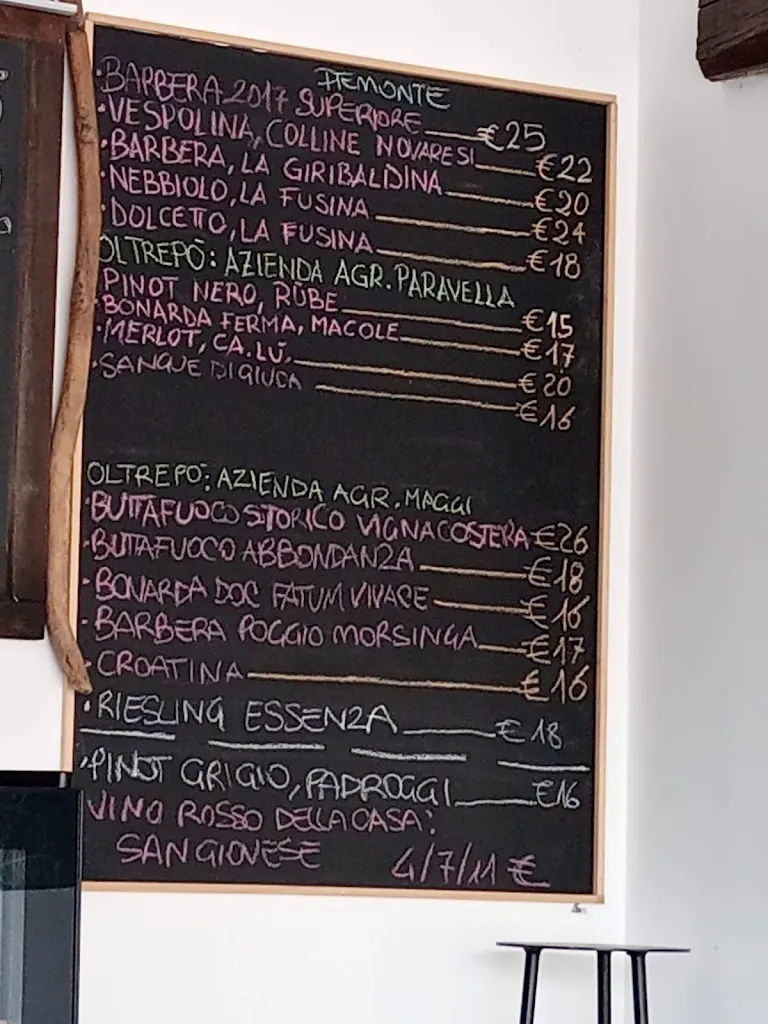 PIEMONTE
·BARBERA 2017 SUPERIORE €25
·VESPOLINA, COLLINE NOVARESI €22
·BARBERA, LA GIRIBALDINA €20
·NEBBIOLO, LA FUSINA €24
·DOLCETTO, LA FUSINA €18
OLTREPÒ: AZIENDA AGR. PARAVELLA
·PINOT NERO, RUBE €15
·BONARDA FERMA, MACOLE €17
·MERLOT, CA.LÙ. €20
·SANGUE DI GIUDA €16
OLTREPÒ: AZIENDA AGR. MAGGI
·BUTTAFUOCO STORICO VIGNA COSTERA €26
·BUTTAFUOCO ABBONDANZA €18
·BONARDA DOC FATUM VIVACE €16
·BARBERA POGGIO MORSINGA €17
·CROATINA €16
·RIESLING ESSENZA €18
·PINOT GRIGIO, PADROGGI €16
VINO ROSSO DELLA CASA:
SANGIOVESE 4/7/11 €